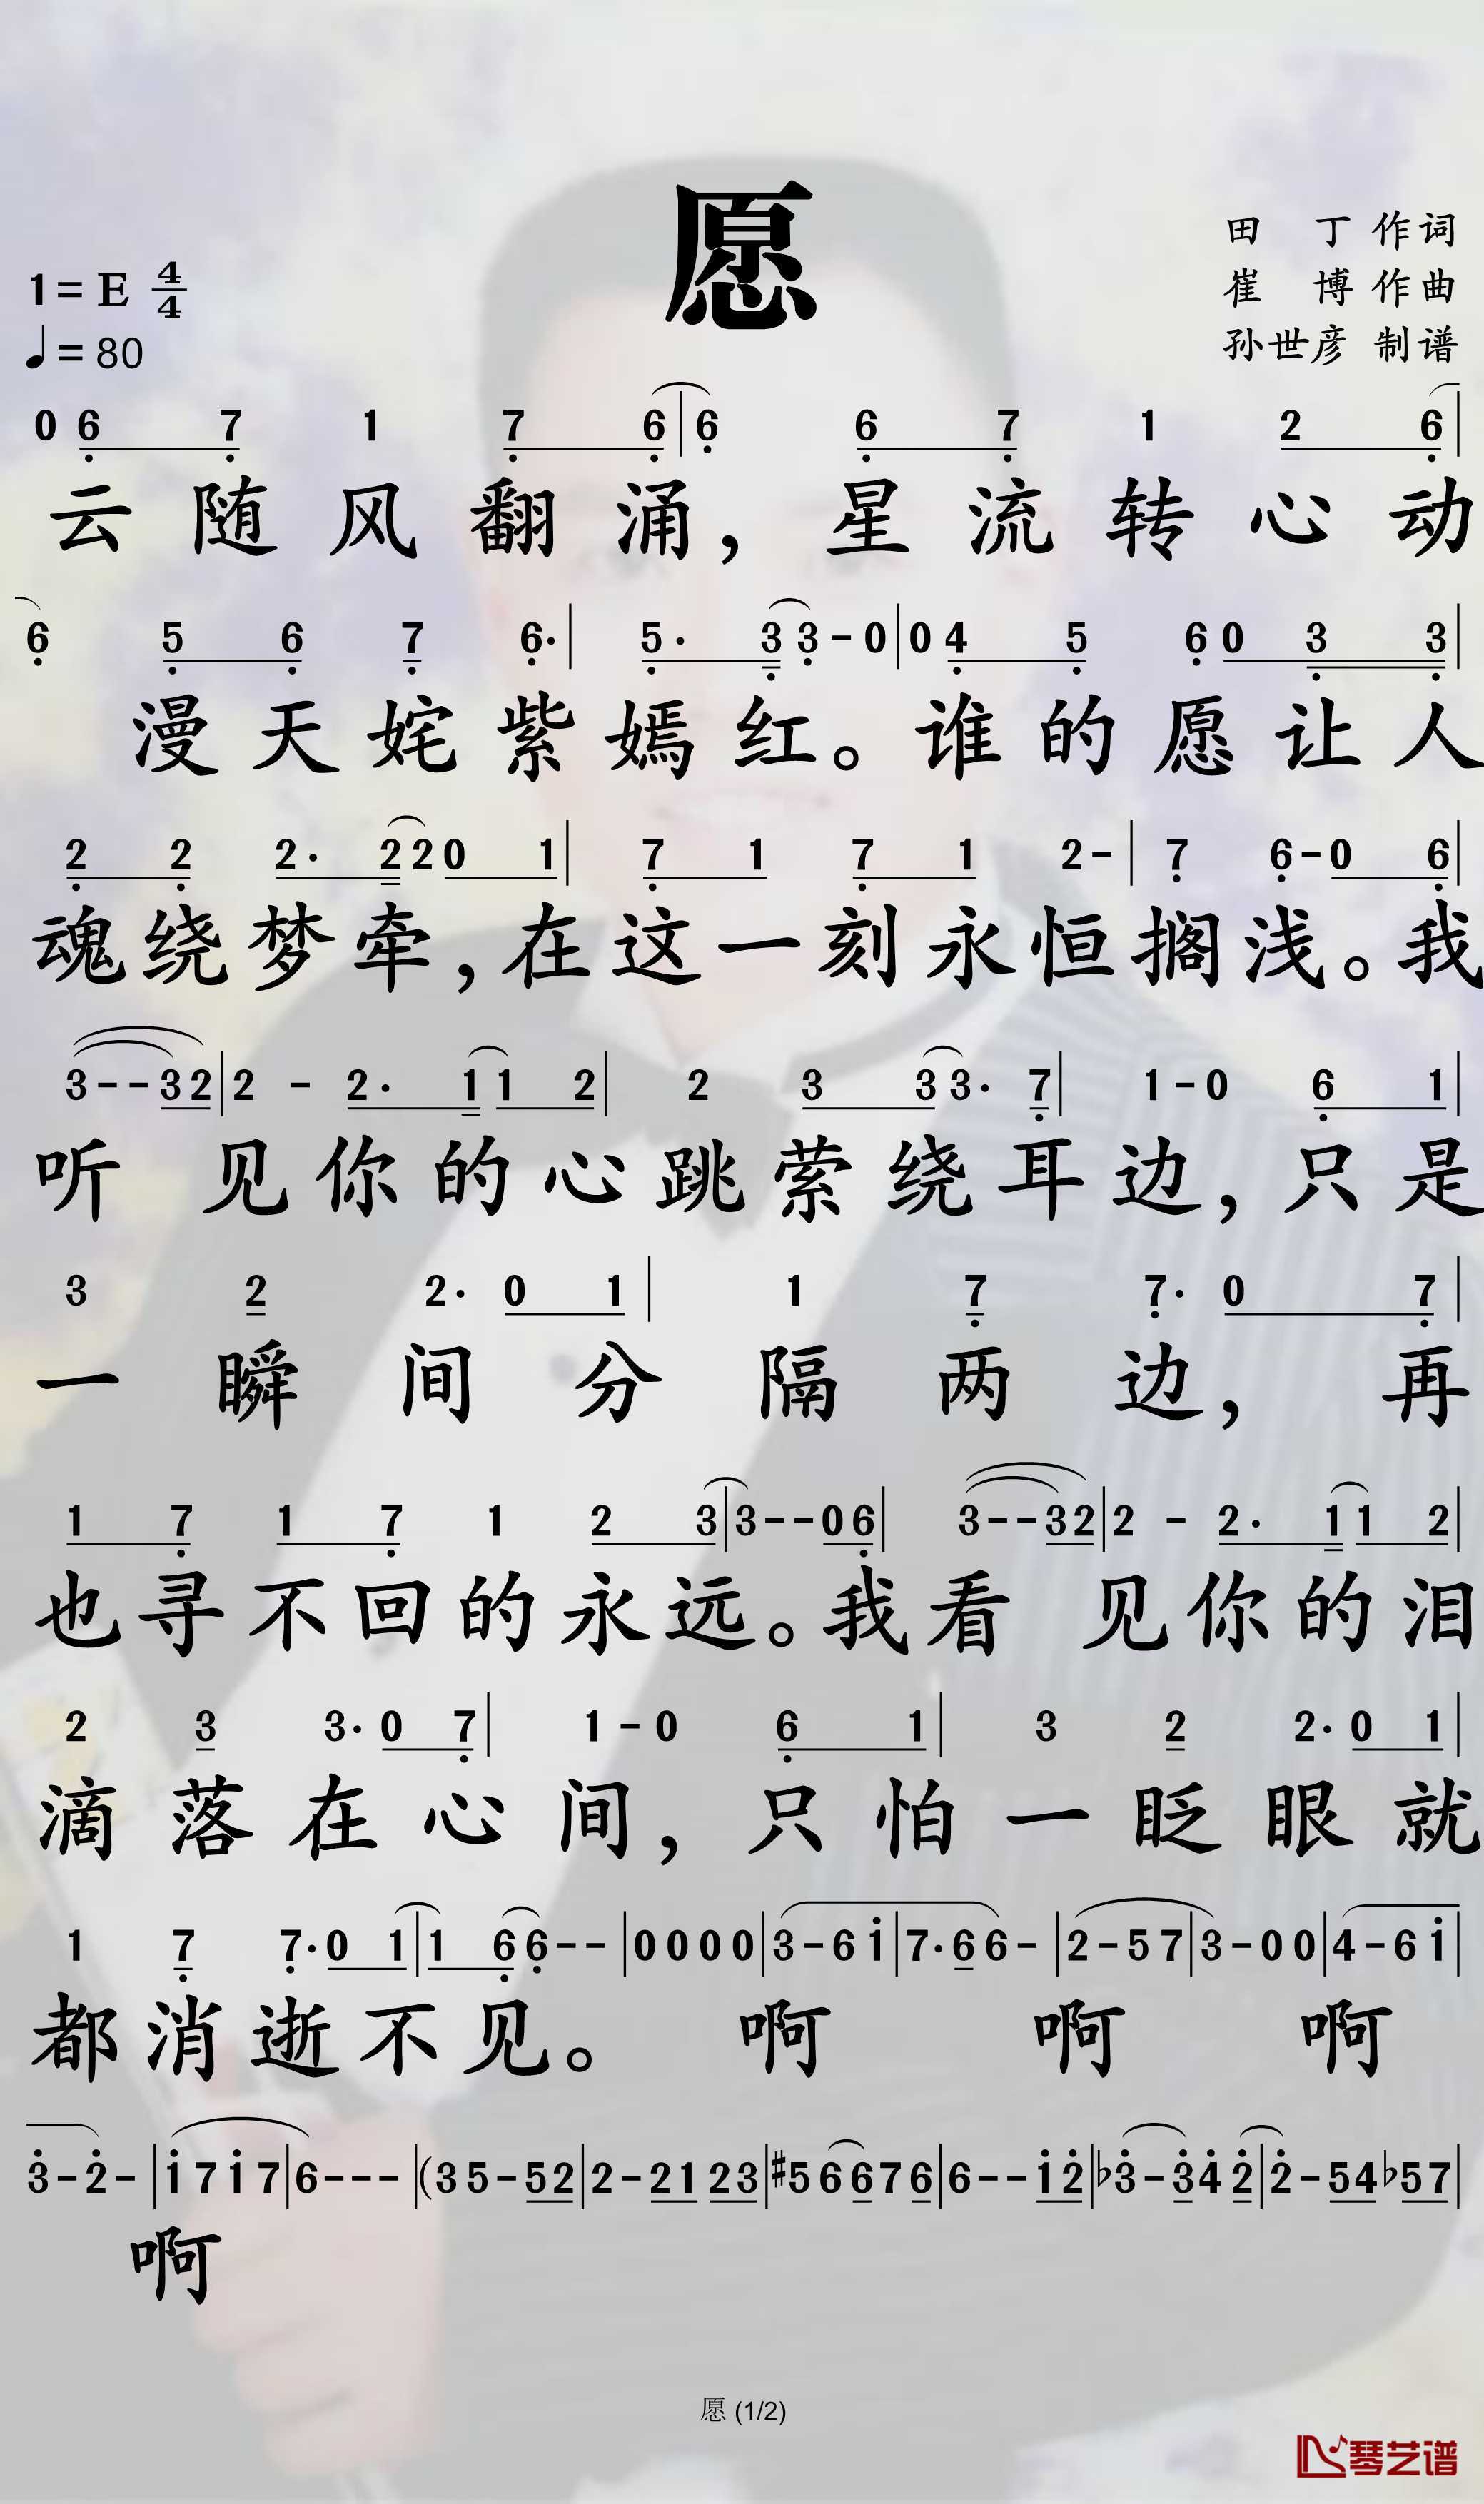 愿
田 丁 作词
崔 博 作曲
孙世彦 制谱
1=E 4/4
♩=80
0 6̣ 7̣ 1 7̣ 6̣ | 6̣ 6̣ 7̣ 1 2 6̣ |
云随风翻涌，星流转心动
6̣ 5̣ 6̣ 7̣ 6̣· | 5̣· 3̣ 3̣ - 0 | 0 4̣ 5̣ 6̣ 0 3̣ 3̣ |
漫天姹紫嫣红。谁的愿让人
2̣ 2̣ 2· 2 2 0 1 | 7̣ 1 7̣ 1 2 - | 7̣ 6̣ - 0 6̣ |
魂绕梦牵，在这一刻永恒搁浅。我
3 - - 3 2 | 2 - 2· 1 1 2 | 2 3 3 3· 7̣ | 1 - 0 6̣ 1 |
听见你的心跳萦绕耳边，只是
3 2 2· 0 1 | 1 7̣ 7̣· 0 7̣ |
一瞬间分隔两边，再
1 7̣ 1 7̣ 1 2 3 | 3 - - 0 6̣ | 3 - - 3 2 | 2 - 2· 1 1 2 |
也寻不回的永远。我看见你的泪
2 3 3· 0 7̣ | 1 - 0 6̣ 1 | 3 2 2· 0 1 |
滴落在心间，只怕一眨眼就
1 7̣ 7̣· 0 1 | 1 6̣ 6̣ - - | 0 0 0 0 | 3 - 6 1̇ | 7· 6 6 - | 2 - 5 7 | 3 - 0 0 | 4 - 6 1̇ |
都消逝不见。 啊 啊 啊
3̇ - 2̇ - | 1̇ 7 1̇ 7 | 6 - - - | (3 5 - 5 2 | 2 - 2 1 2 3 | #5 6 6 7 6 | 6 - - 1̇ 2̇ | ♭3̇ - 3̇ 4̇ 2̇ | 2̇ - 5 4 ♭5 7 |
啊
愿 (1/2)
琴艺谱